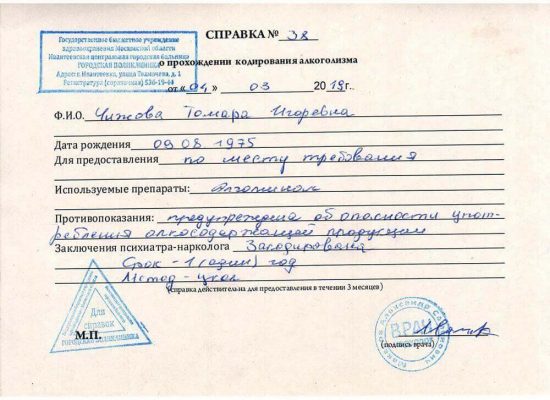 Государственное бюджетное учреждение
здравоохранения Московской области
Ивантеевская центральная городская больница
ГОРОДСКАЯ ПОЛИКЛИНИКА
Адрес: г. Ивантеевка, улица Толмачева, д. 1
Регистратура (справочная) 536-19-44
СПРАВКА № 38
о прохождении кодирования алкоголизма
от «04» 03 2019г.
Ф.И.О. Чижова Томара Игоревна
Дата рождения 09.08.1975
Для предоставления по месту требования
Используемые препараты: Алгоминал
Противопоказания: предупреждена об опасности упот-
ребления алкосодержащей продукции
Заключения психиатра-нарколога Закодирована
Срок - 1 (один) год
Метод - укол
(справка действительна для предоставления в течении 3 месяцев)
Для
справок
ГОРОДСКАЯ ПОЛИКЛИНИКА
М.П.
ВРАЧ
(подпись врача)